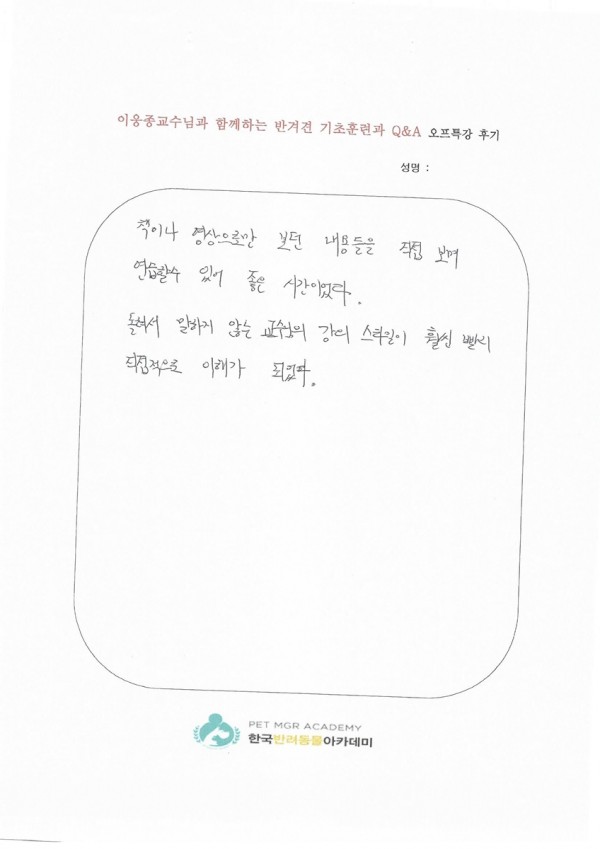 이웅종교수님과 함께하는 반겨견 기초훈련과 Q&A 오프특강 후기
성명 :
책이나 영상으로만 보던 내용들을 직접 보며
연습할수 있어 좋은 시간이었다.
돌려서 말하지 않는 교수님의 강의 스타일이 훨씬 빨리
직접적으로 이해가 되었다.
PET MGR ACADEMY
한국반려동물아카데미